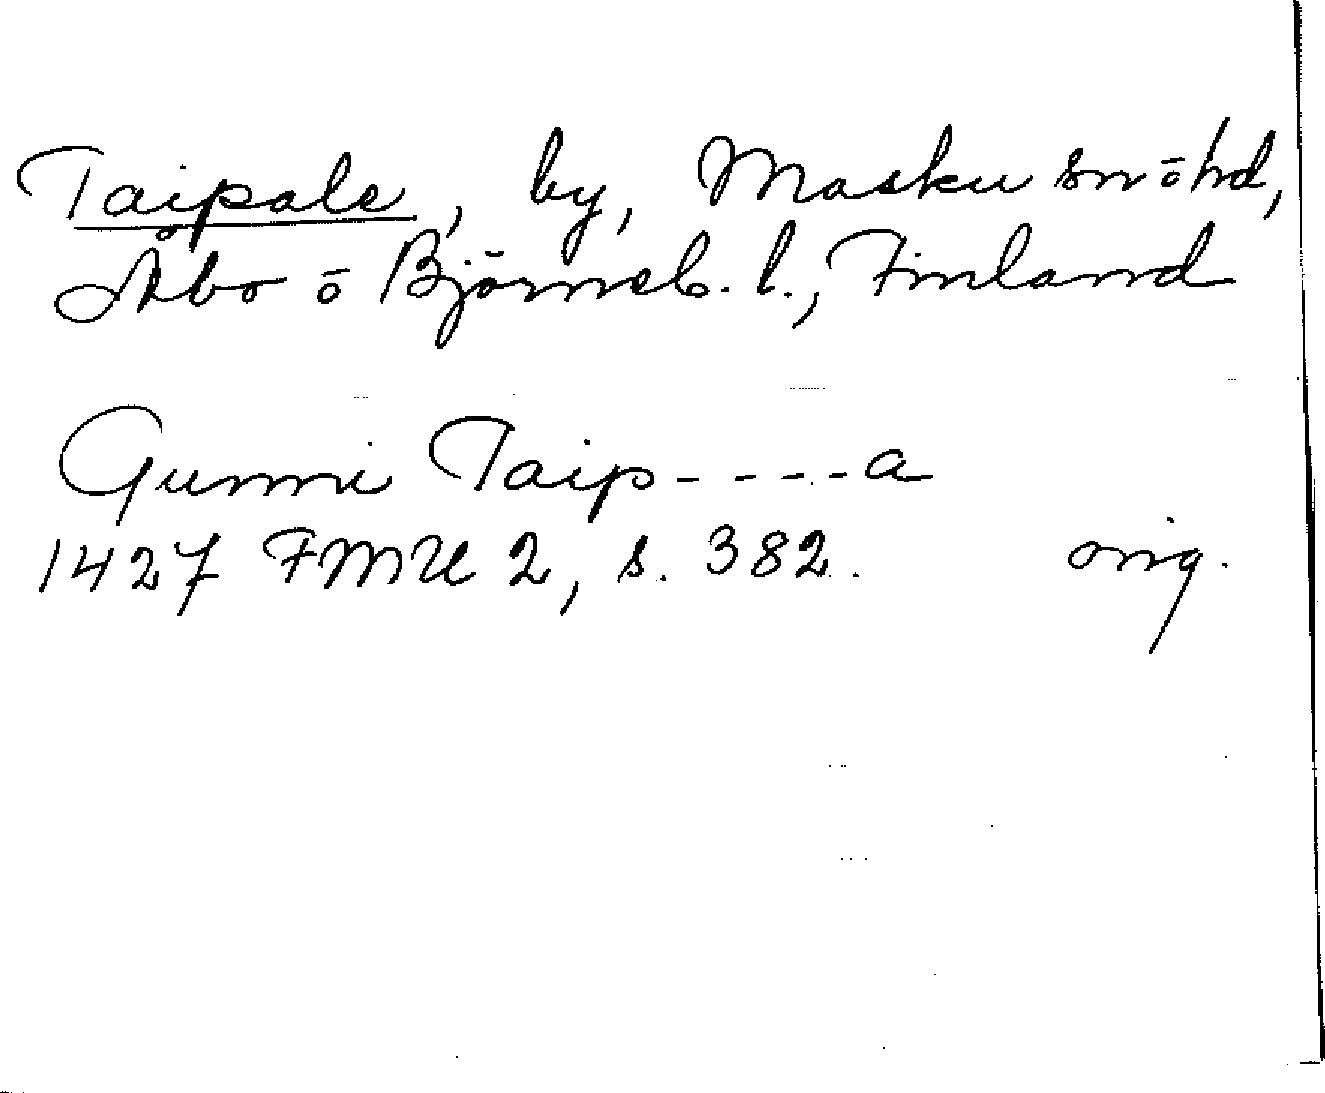 Taipale, by, Masku sn ō hd,
Åbo ō Björneb. l., Finland
Gunni Taip - - - - a
1427 FMU 2, s. 382. orig.